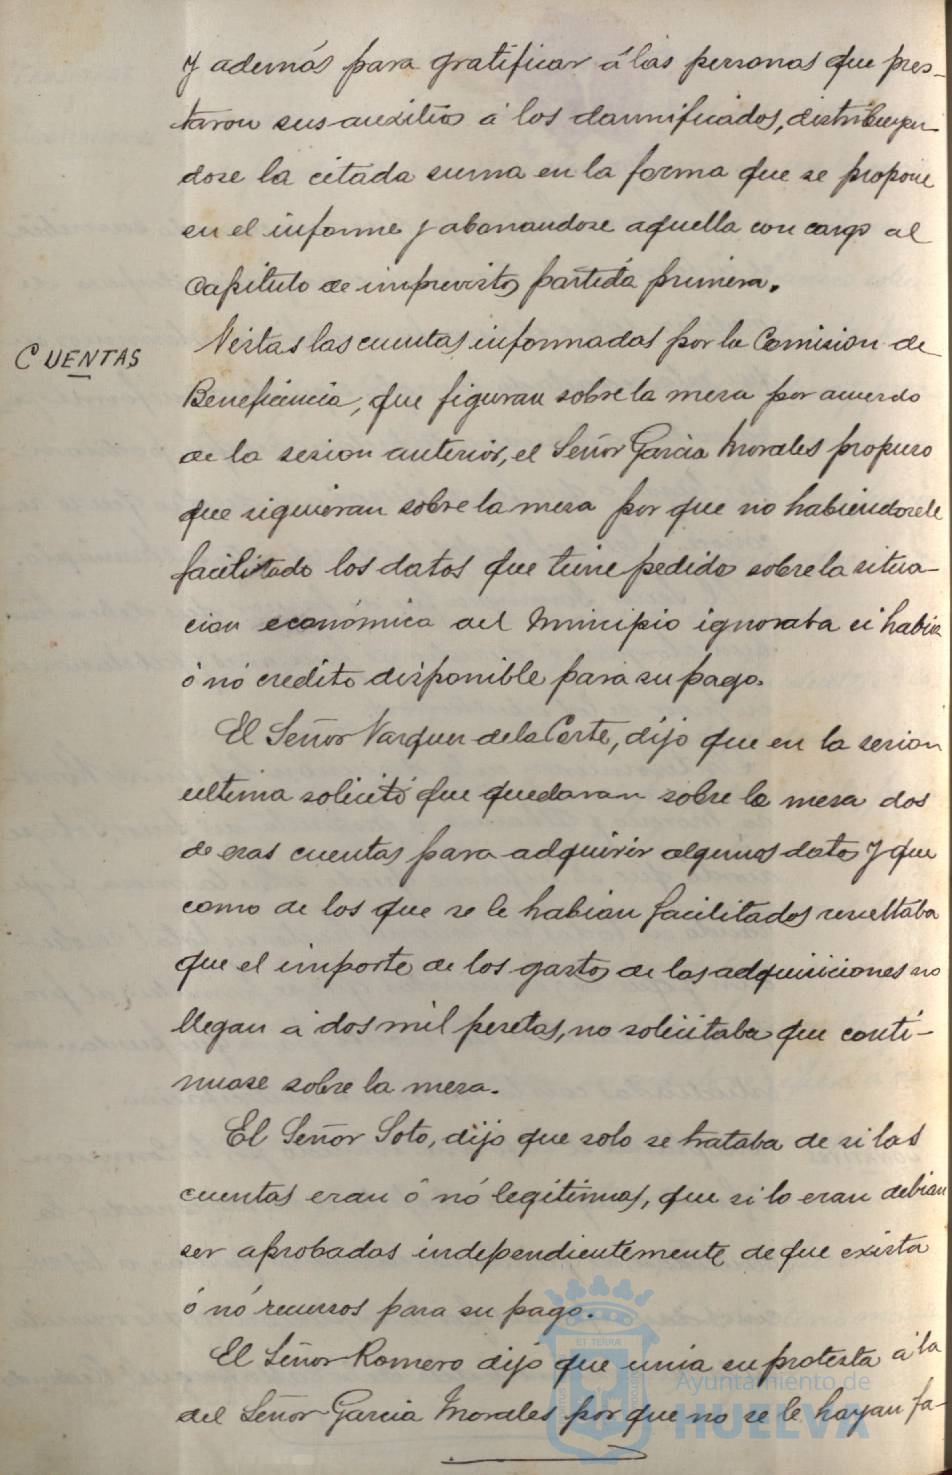 y además para gratificar á las personas que pres-
taron sus auxilios á los damnificados, distribuyen
dose la citada suma en la forma que se propone
en el informe y abonandose aquella con cargo al
Capitulo de imprevistos partida primera.
CUENTAS
Vistas las cuentas informadas por la Comision de
Beneficencia, que figuran sobre la mesa por acuerdo
de la sesion anterior, el Señor Garcia Morales propuso
que siguieran sobre la mesa por que no habiendosele
facilitado los datos que tiene pedidos sobre la situa-
cion económica del Municipio ignoraba si habia
ó nó credito disponible para su pago.
El Señor Vazquez de la Corte, dijo que en la sesion
ultima solicitó que quedaran sobre la mesa dos
de esas cuentas para adquirir algunos datos y que
como de los que se le habian facilitados resultaba
que el importe de los gastos de las adquisiciones no
llegan á dos mil pesetas, no solicitaba que conti-
nuase sobre la mesa.
El Señor Soto, dijo que solo se trataba de si las
cuentas eran ó nó legitimas, que si lo eran debian
ser aprobadas independientemente de que exista
ó nó recursos para su pago.
El Señor Romero dijo que unia su protesta á la
del Señor Garcia Morales por que no se le hayan fa-
Ayuntamiento de
HUELVA